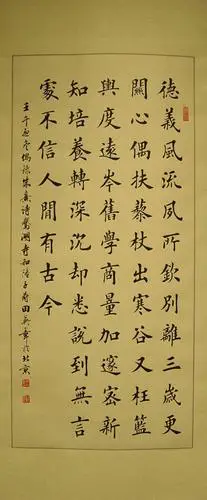 德義風流夙所欽別離三歲更
關心偶扶藜杖出寒谷又枉籃
輿度遠岑舊學商量加邃密新
知培養轉深沉却說到無言
處不信人間有古今
壬午偶錄朱熹詩鵝湖寺和陸子壽田英章於北京